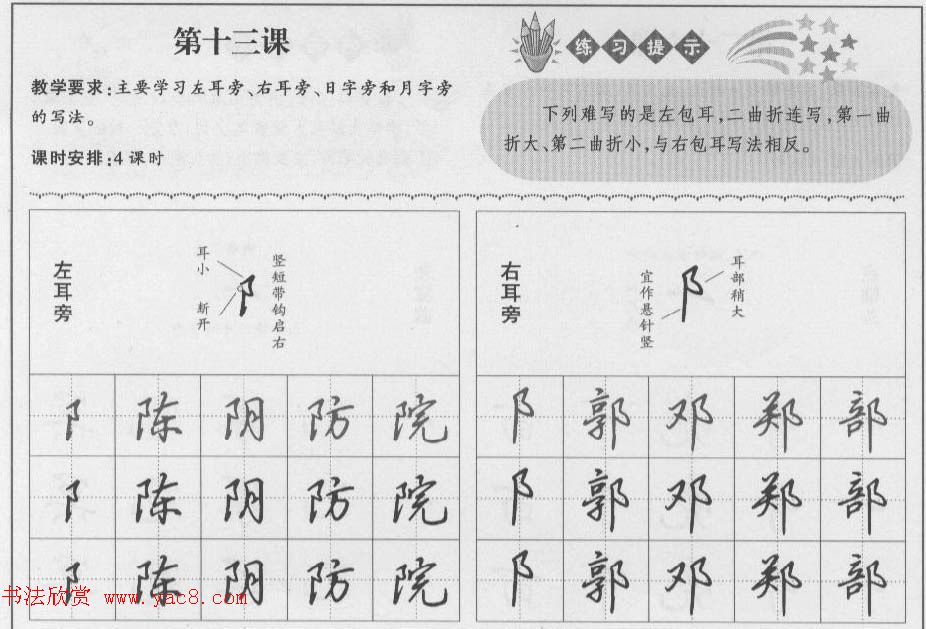 第十三课
教学要求:主要学习左耳旁、右耳旁、日字旁和月字旁
的写法。
课时安排:4课时
练习提示
下列难写的是左包耳,二曲折连写,第一曲
折大、第二曲折小,与右包耳写法相反。
左耳旁
耳小
断开
竖短带钩启右
阝 陈 阴 防 院
阝 陈 阴 防 院
阝 陈 阴 防 院
右耳旁
宜作悬针竖
耳部稍大
阝 郭 邓 郑 部
阝 郭 邓 郑 部
阝 郭 邓 郑 部
书法欣赏 www.yac8.com